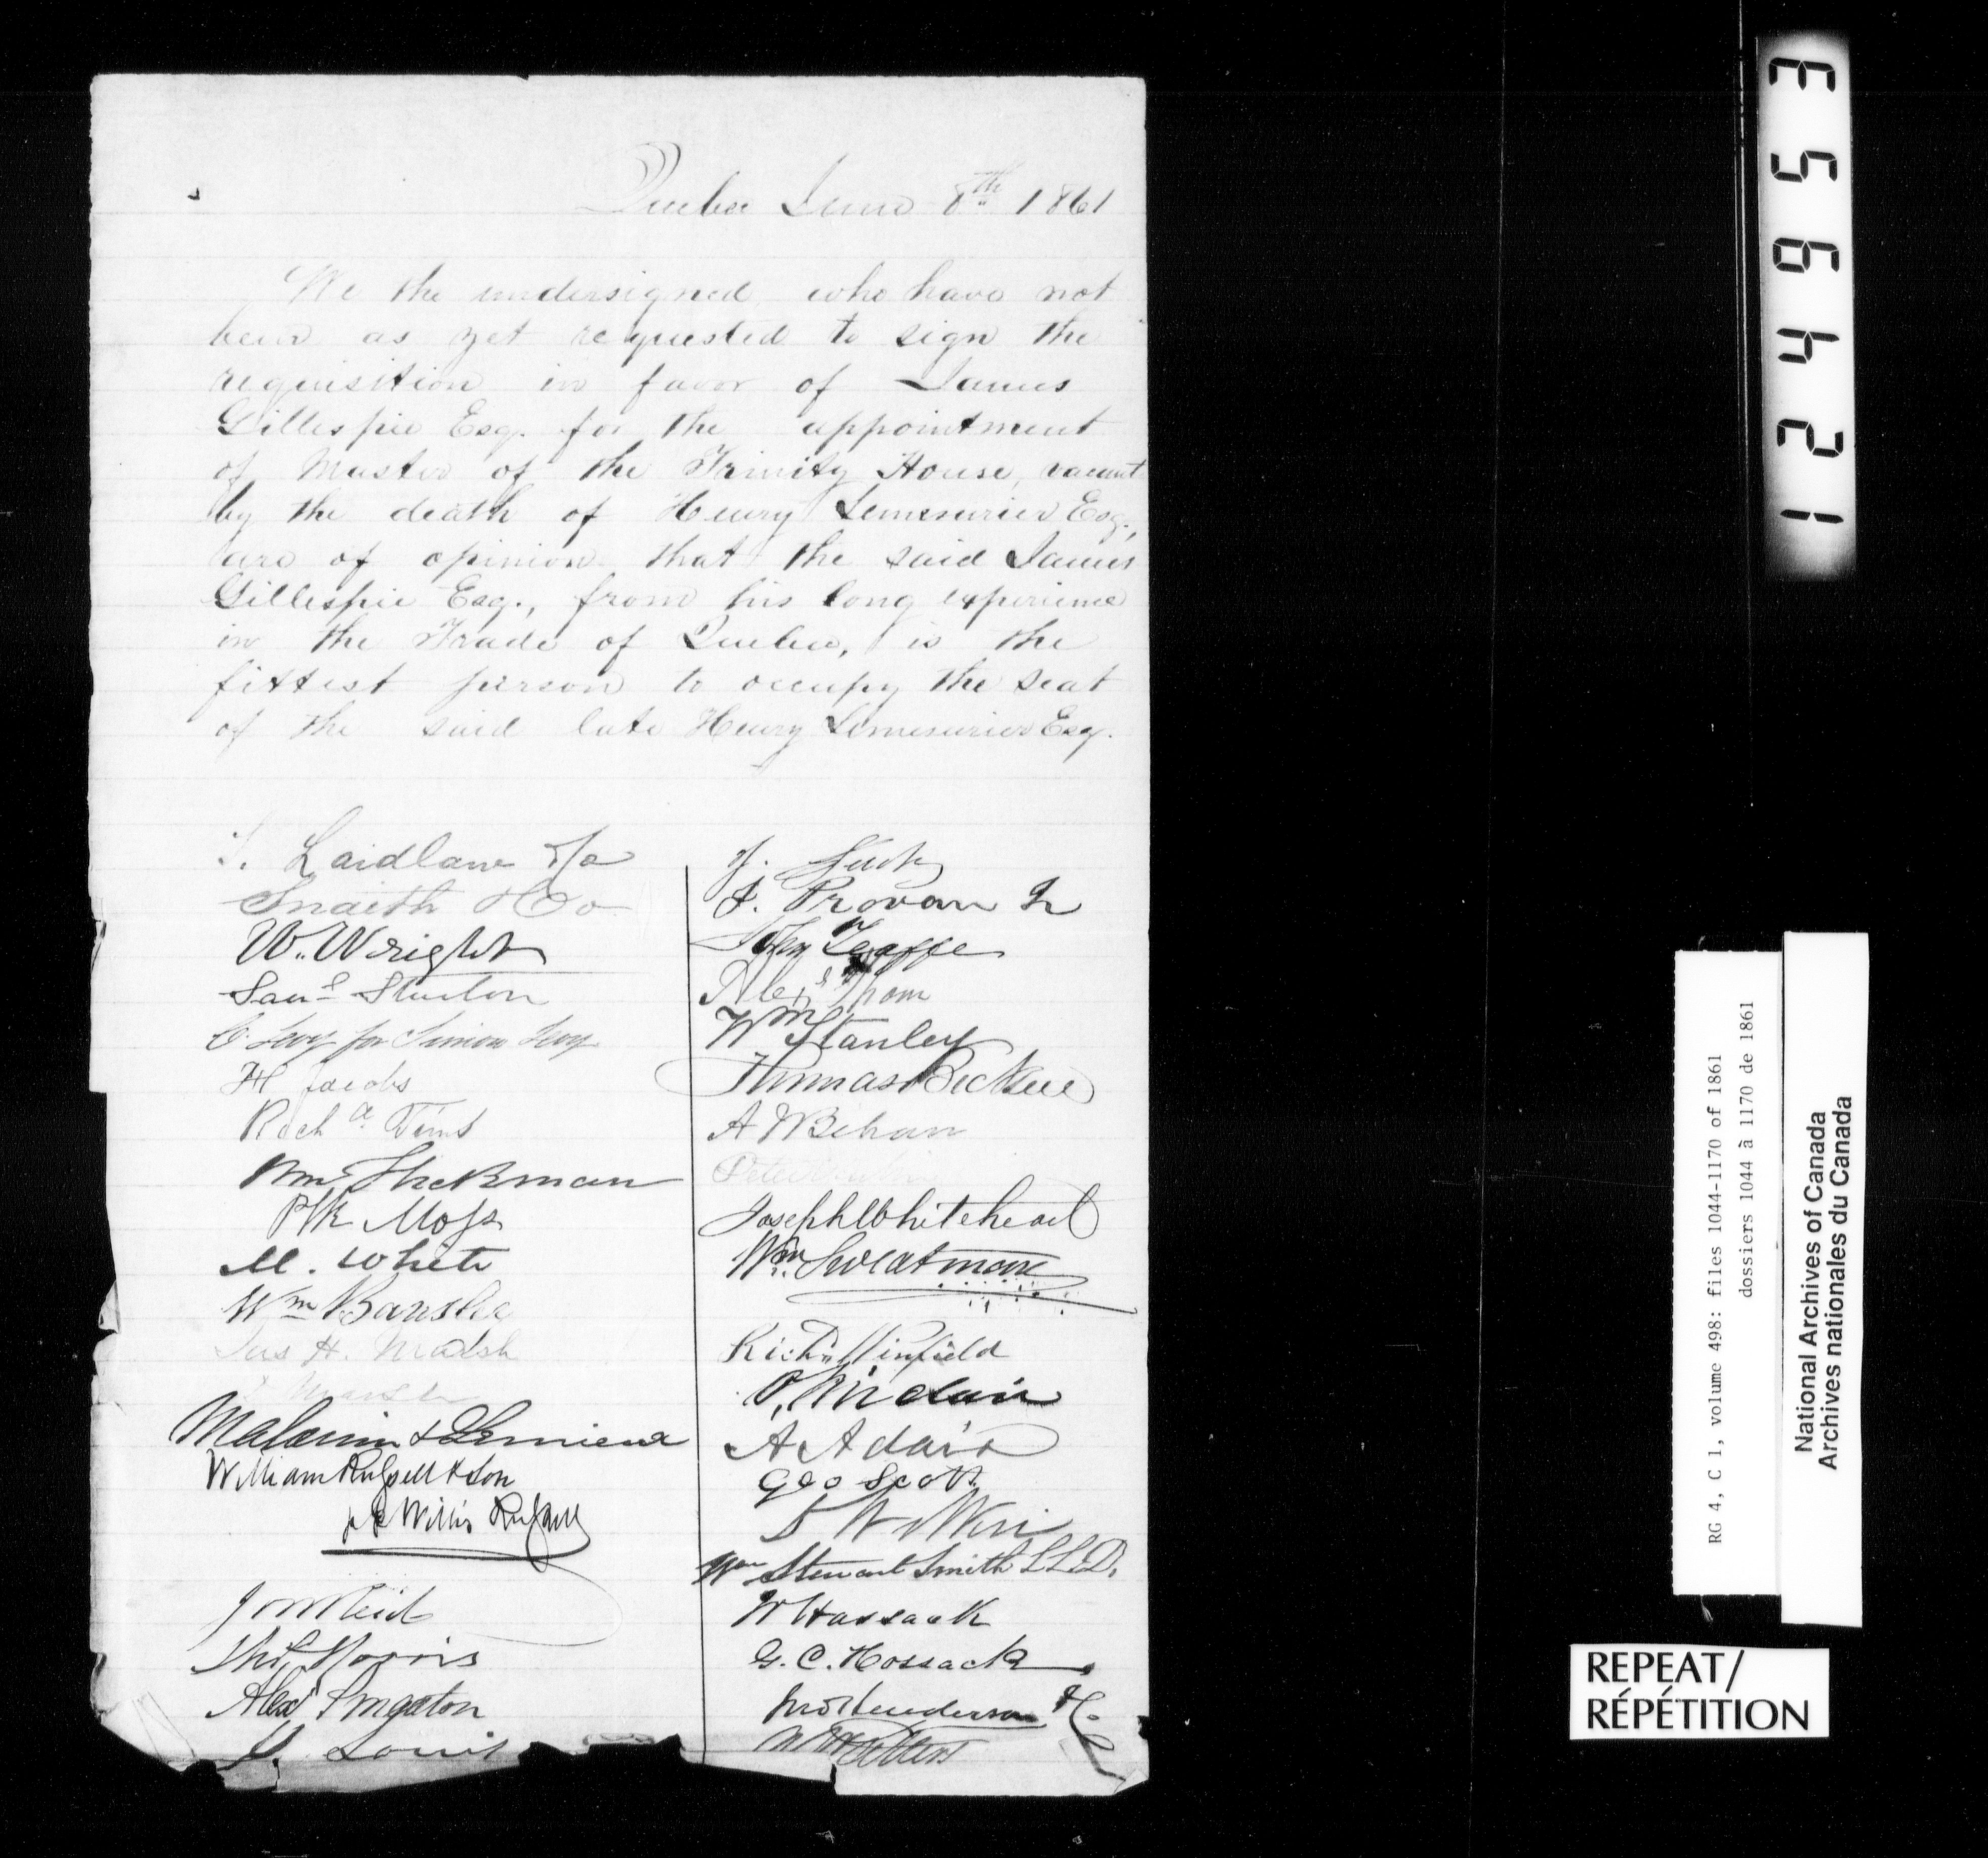 Quebec June 8th 1861
We the undersigned, who have not
been as yet requested to sign the
requisition in favor of James
Gillespie Esq. for the appointment
of Master of the Trinity House, vacant
by the death of Henry Lemesurier Esq.,
are of opinion that the said James
Gillespie Esq., from his long experience
in the Trade of Quebec, is the
fittest person to occupy the seat
of the said late Henry Lemesurier Esq.
T. Laidlaw
Snaith & Co
W. Wright
Saml
C. Levy for Simon Levy
H Jacobs
Wm
Moss
M. White
Wm
Jas H.
& Lemieux
William Russell & Son
Willis Russell
Reid
Morris
Alexr
Louis
J.
J. Provan Jr
John
Alexr Thom
Wm Stanley
Thomas
A Behan
Joseph Whitehead
Wm. Sweatman
Richd.
Sinclair
A Adair
Geo Scott
Wm Stewart Smith LLD.
W Hossack
G. C. Hossack
Jno Henderson
1249653
RG 4, C 1, volume 498: files 1044-1170 of 1861
dossiers 1044 à 1170 de 1861
National Archives of Canada
Archives nationales du Canada
REPEAT/
RÉPÉTITION